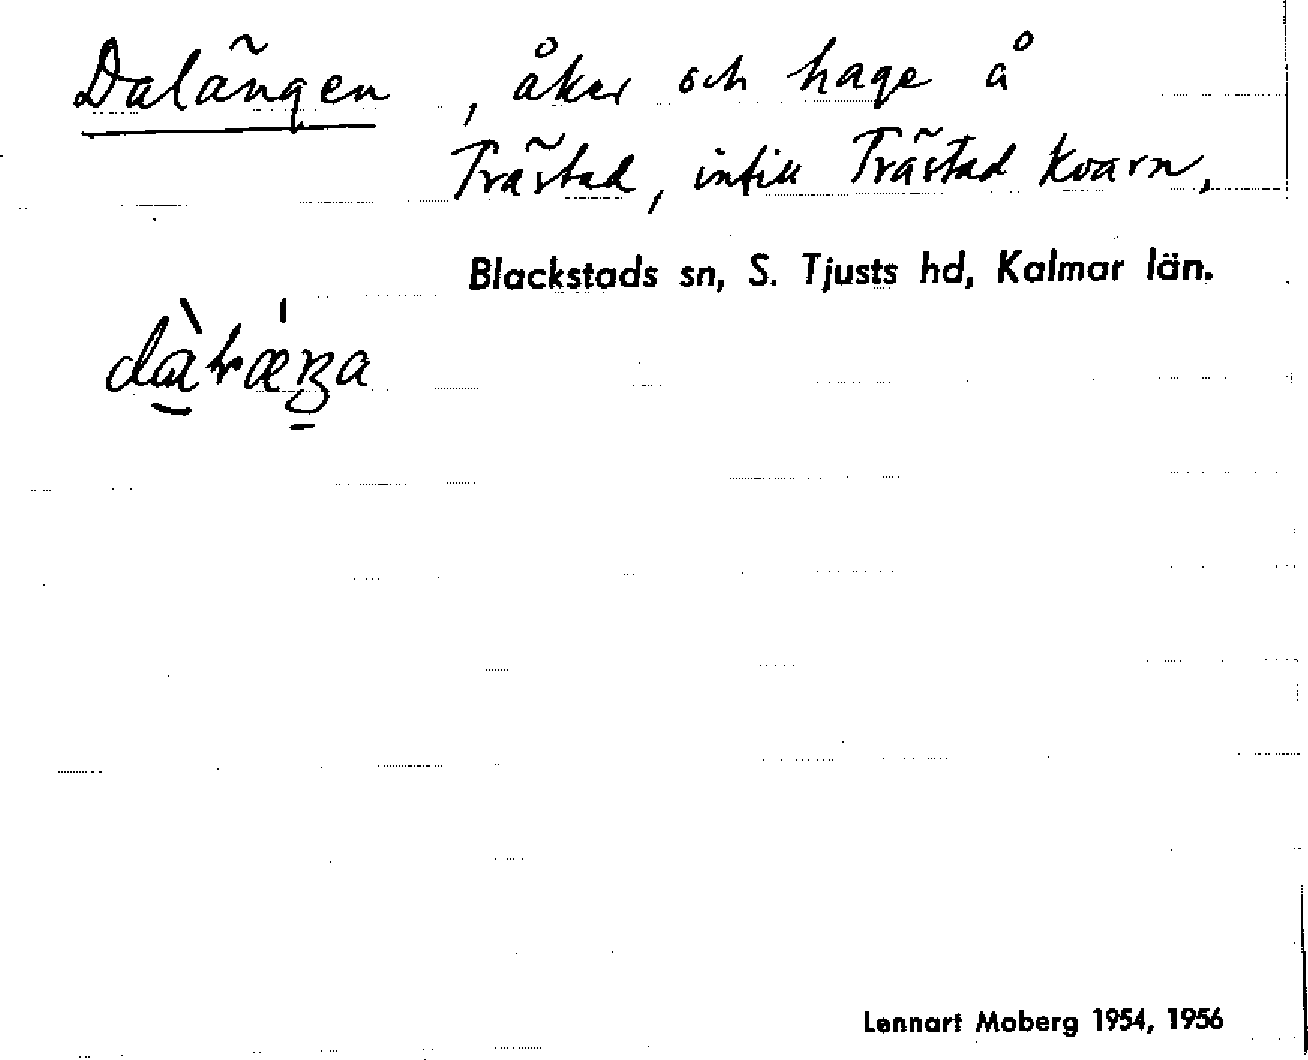 Dalängen, åker och hage å
Trästad, intill Trästad kvarn,
Blackstads sn, S. Tjusts hd, Kalmar län.
Lennart Moberg 1954, 1956